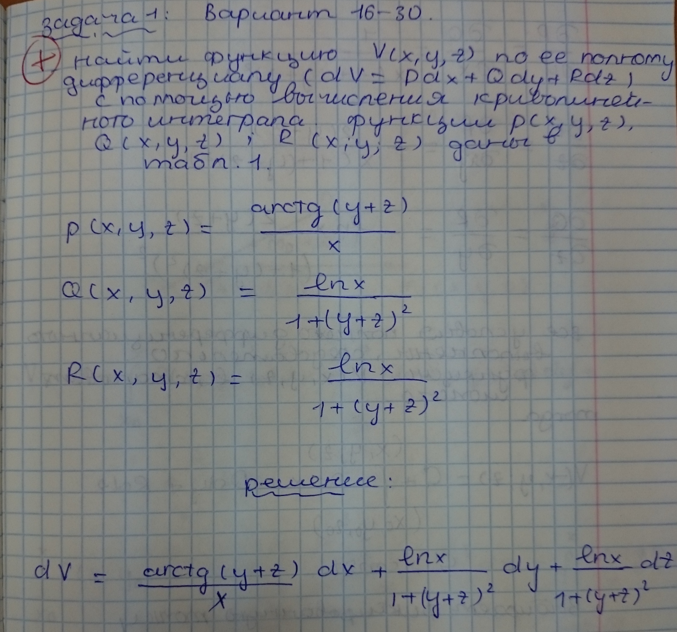 Задача 1: Вариант 16-30.
+ найти функцию V(x,y,z) по ее полному
дифференциалу (dV = Pdx + Qdy + Rdz)
с помощью вычисления криволиней-
ного интеграла. функции P(x,y,z),
Q(x,y,z), R(x,y,z) даны в
табл. 1.
P(x,y,z) = arctg(y+z) / x
Q(x,y,z) = lnx / 1+(y+z)²
R(x,y,z) = lnx / 1+(y+z)²
решение:
dV = arctg(y+z) / x dx + lnx / 1+(y+z)² dy + lnx / 1+(y+z)² dz